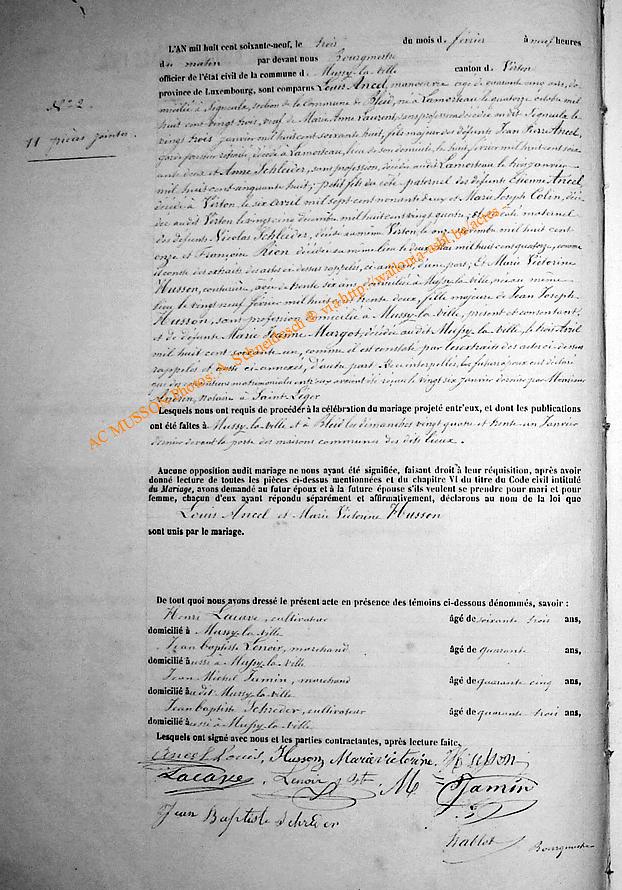 N° 2
11 pièces jointes
L'AN mil huit cent soixante-neuf, le trois du mois d février à neuf heures
du matin par devant nous Bourgmestre
officier de l'état civil de la commune d Mussy-la-ville canton d Virton
province de Luxembourg, sont comparus Louis Ancel, manoeuvre âgé de quarante cinq ans, do
micilié à Signeulx, section de la Commune de Bleid, né à Lamorteau le quatorze octobre mil
huit cent vingt trois, veuf de Marie Anne Laurent, sans profession décédée audit Signeulx le
vingt trois janvier mil huit cent soixante huit, fils majeur des défunts Jean Pierre Ancel,
garde forestier retraité, décédé à Lamorteau, lieu de son domicile, le huit février mil huit cent soix
ante deux et Anne Schleider, sans profession, décédée audit Lamorteau le janvier
mil huit cent cinquante huit; petit fils du côté paternel des défunts Etienne Ancel
décédé à Virton le six avril mil sept cent nonante deux et Marie Joseph Colin, dé
cédée audit Virton le vingt cinq décembre mil huit cent vingt quatre, et du côté maternel
des défunts Nicolas Schleider, décédé au même Virton le onze mil huit cent
onze et Françoise Rien décédée au même lieu le deux Mai mil huit cent quatorze, comme
il conste des extraits des actes ci-dessus rappelés, ci-annexés, d'une part; Et Marie Victorine
Husson, couturière, âgée de trente six ans, domiciliée à Mussy-la-Ville, née au même
lieu le vingt neuf février mil huit cent trente deux, fille majeure de Jean Joseph
Husson, sans profession domicilié à Mussy-la-Ville, présent et consentant,
et de défunte Marie Jeanne Margot, décédée audit Mussy-la-Ville, le trois avril
mil huit cent soixante un, comme il est constaté par les extraits des actes ci-dessus
rappelés et aussi ci-annexés, d'autre part. Les interpellés, les futurs époux ont déclaré
que des conventions matrimoniales entr'eux avaient été reçues le vingt six janvier dernier par Monsieur
notaire à Saint-Léger
Lesquels nous ont requis de procéder à la célébration du mariage projeté entr'eux, et dont les publications
ont été faites à Mussy-la-Ville et à Bleid les dimanches vingt quatre et trente un Janvier
dernier devant la porte des maisons communes des dits lieux.
Aucune opposition audit mariage ne nous ayant été signifiée, faisant droit à leur réquisition, après avoir
donné lecture de toutes les pièces ci-dessus mentionnées et du chapitre VI du titre du Code civil intitulé
du Mariage, avons demandé au futur époux et à la future épouse s'ils veulent se prendre pour mari et pour
femme, chacun d'eux ayant répondu séparément et affirmativement, déclarons au nom de la loi que
Louis Ancel et Marie Victorine Husson
sont unis par le mariage.
De tout quoi nous avons dressé le présent acte en présence des témoins ci-dessous dénommés, savoir :
Henri Lacave, cultivateur âgé de soixante trois ans,
domicilié à Mussy-la-ville
Jean baptiste Lenoir, marchand âgé de quarante ans,
domicilié aussi à Mussy-la-Ville
Jean Michel Jamin, marchand âgé de quarante cinq ans,
domicilié audit Mussy-la-Ville
Jean baptiste Schreder, cultivateur âgé de quarante trois ans,
domicilié aussi à Mussy-la-Ville
Lesquels ont signé avec nous et les parties contractantes, après lecture faite,
Ancel Louis, Husson Marie victorine, Husson
Lacave, Lenoir J Bte M Jamin
Jean Baptiste Schréder
Hablot Bourgmestre
AC MUSSON Photos: A. Schneidesch @ via http://wallonia-asbl.be/actes